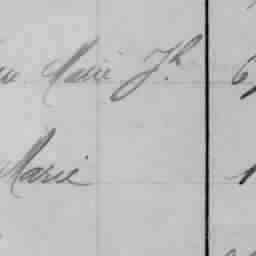 Marie Jh 6
Marie 1